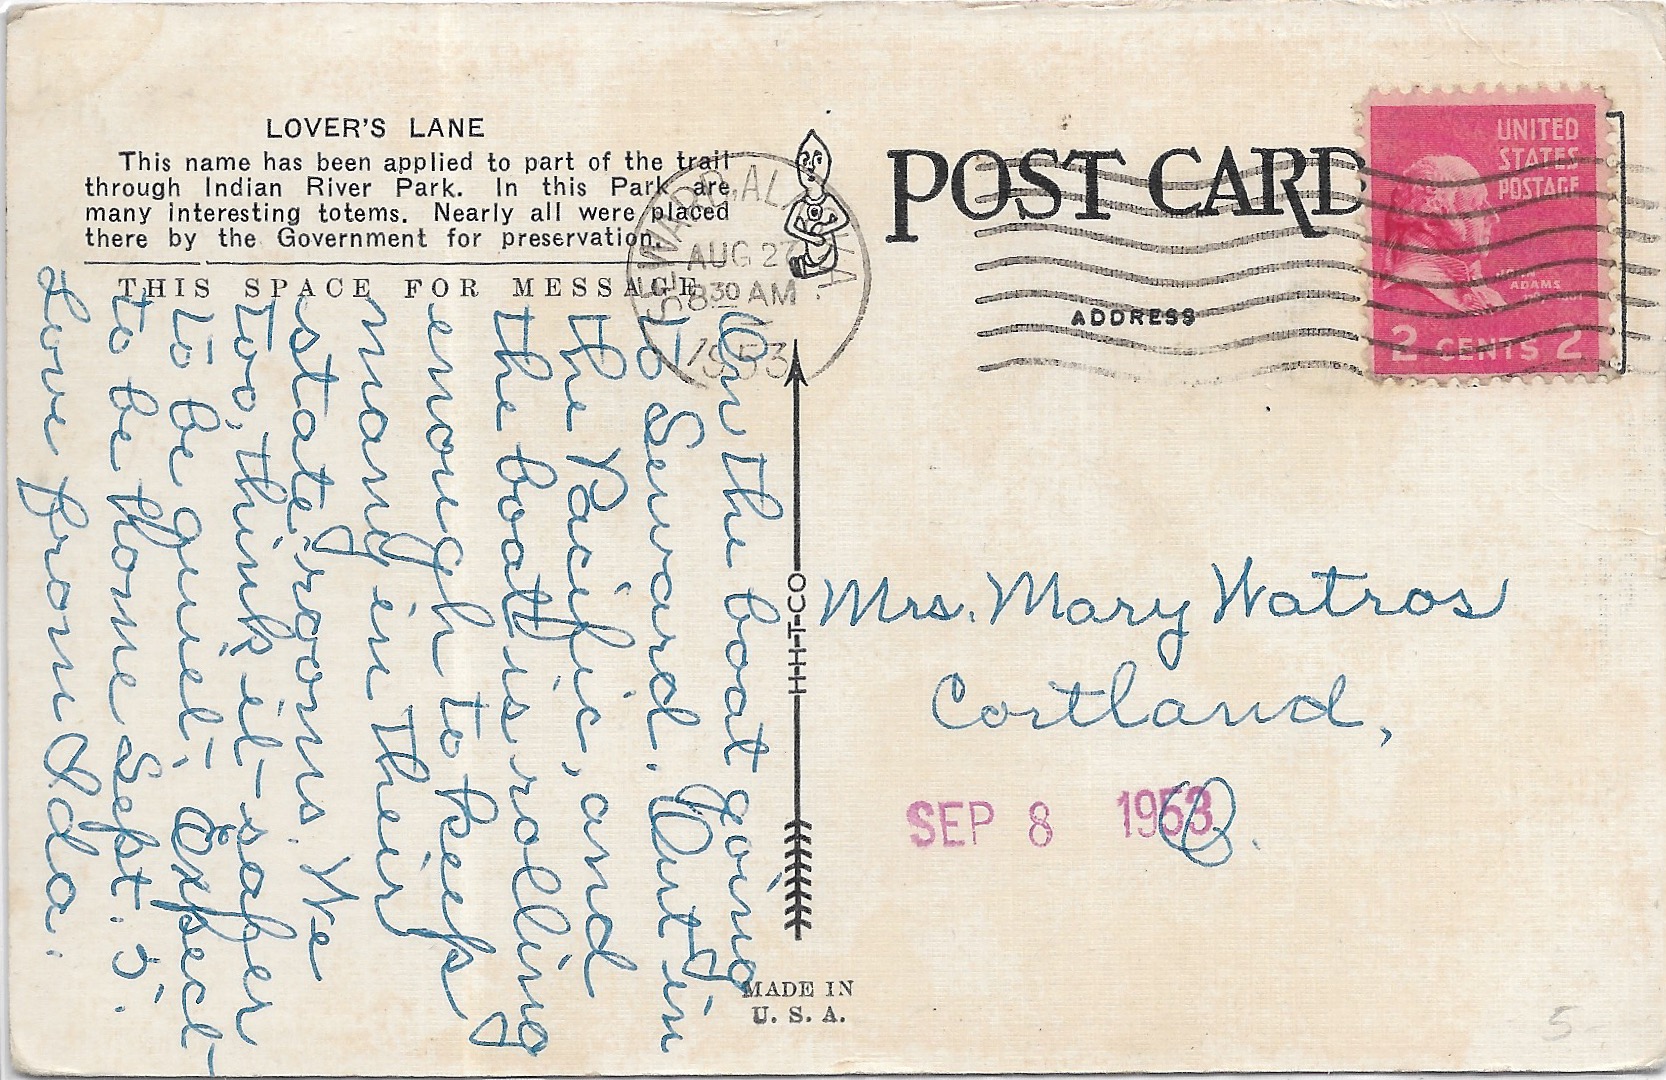 LOVER'S LANE
This name has been applied to part of the trail
through Indian River Park. In this Park are
many interesting totems. Nearly all were placed
there by the Government for preservation.
THIS SPACE FOR MESSAGE
On the boat going
to Seward. Out in
the Pacific, and
the boat is rolling
enough to keep
many in their
state rooms. We
too, think it safer
to be quiet. Expect
to be home Sept. 5.
Love from Ida.
SEWARD, ALASKA
AUG 27
8 30 AM
1953
H-H-T-CO
MADE IN
U. S. A.
POST CARD
UNITED
STATES
POSTAGE
JOHN
ADAMS
2 CENTS 2
ADDRESS
Mrs. Mary Watros
Cortland,
O.
SEP 8 1953
5-